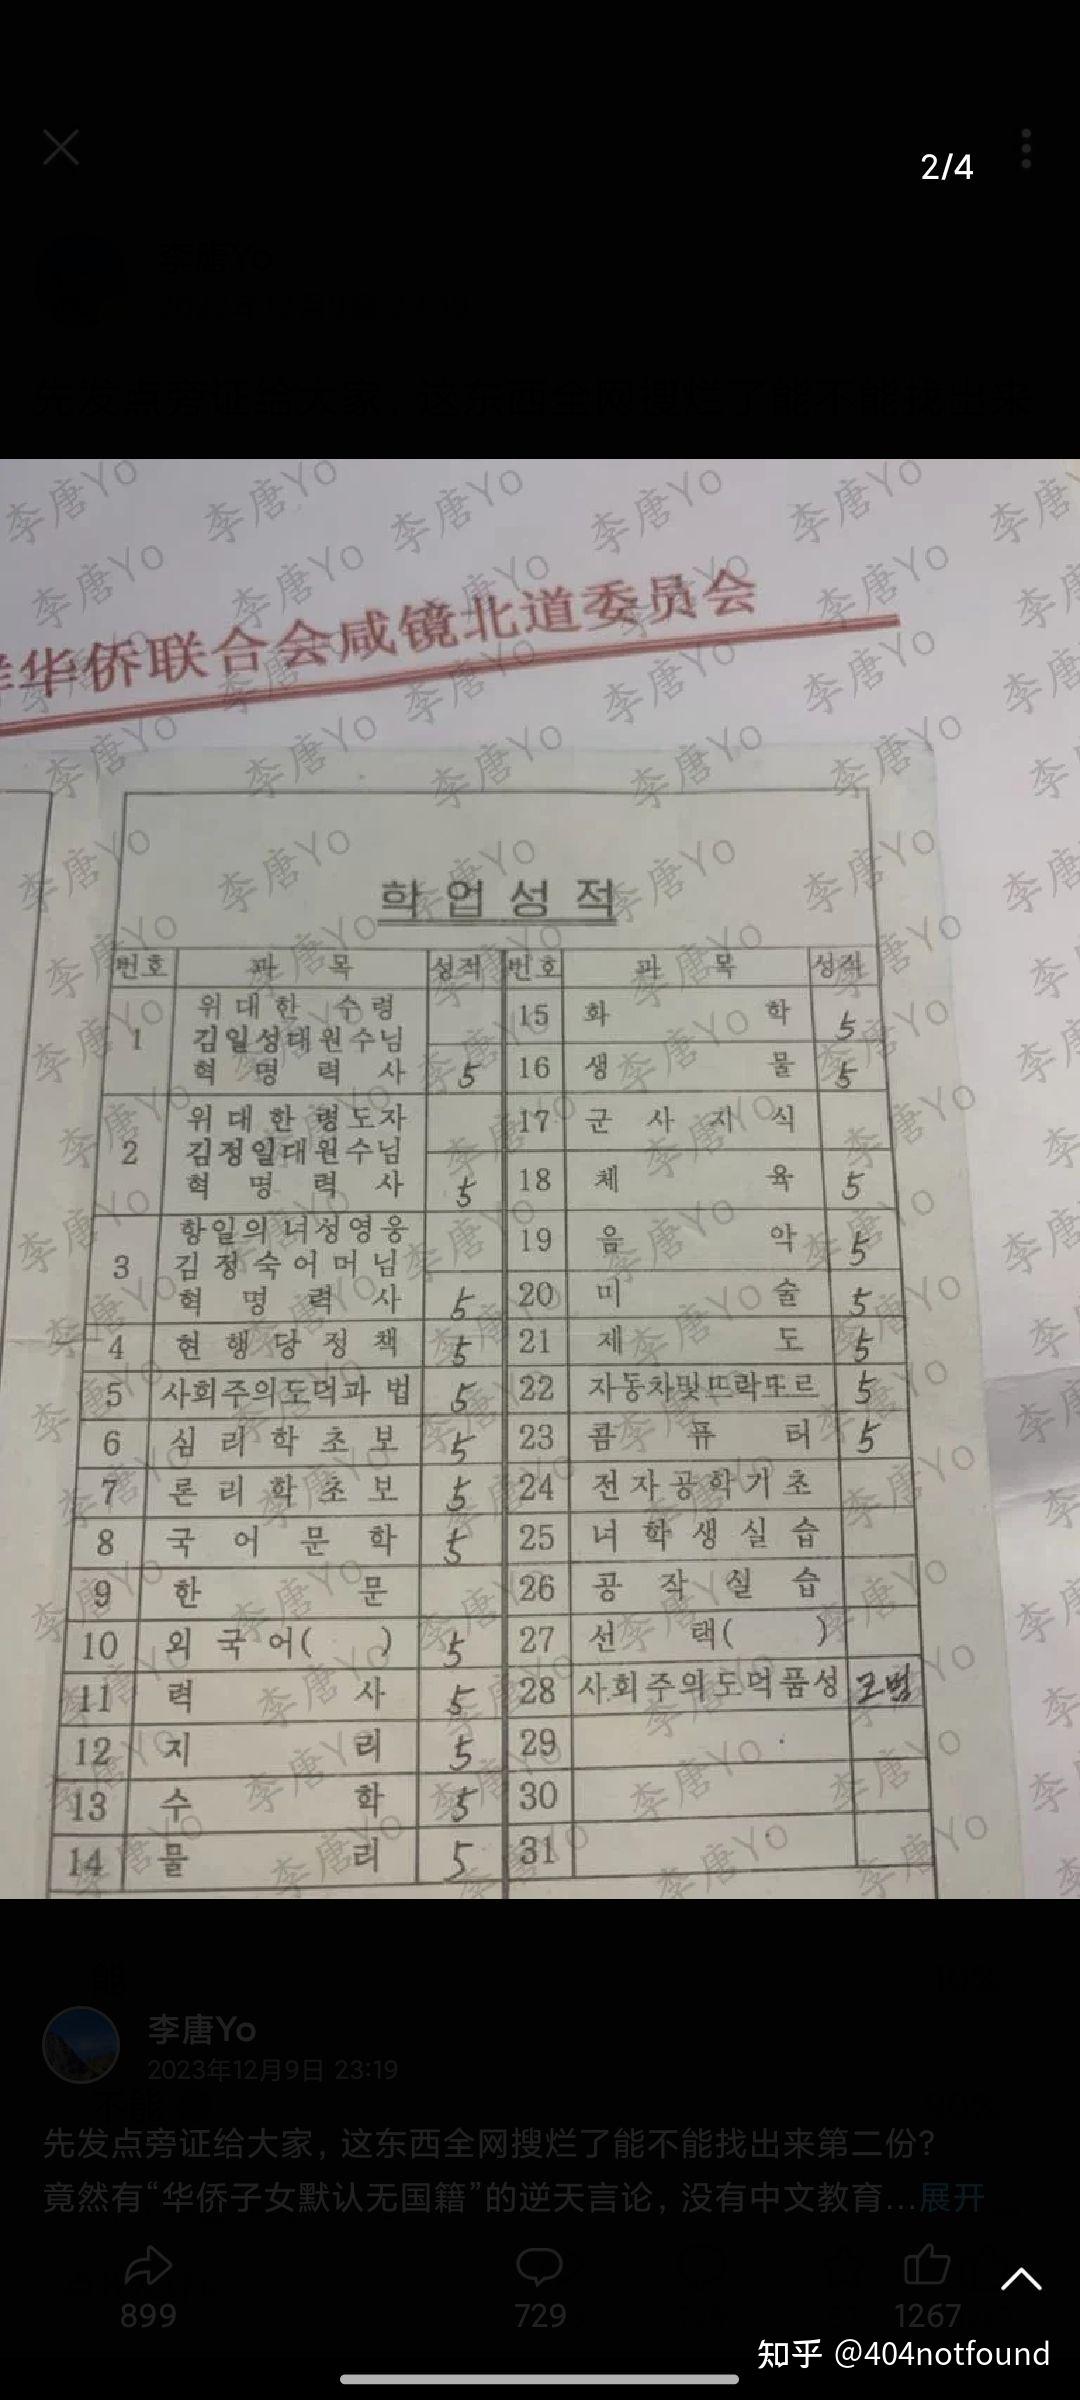 2/4
李唐Yo
先发点旁证给大家，这东西全网搜烂了能不能找出来
华侨联合会咸镜北道委员会
학업성적
번호 과목 성적 번호 과목 성적
1 위대한 수령 김일성대원수님 혁명력사 5
2 위대한 령도자 김정일대원수님 혁명력사 5
3 항일의 녀성영웅 김정숙어머님 혁명력사 5
4 현행당정책 5
5 사회주의도덕과 법 5
6 심리학초보 5
7 론리학초보 5
8 국어문학 5
9 한문
10 외국어( ) 5
11 력사 5
12 지리 5
13 수학 5
14 물리 5
15 화학 5
16 생물 5
17 군사지식
18 체육 5
19 음악 5
20 미술 5
21 제도 5
22 자동차및뜨락또르 5
23 콤퓨터 5
24 전자공학기초
25 녀학생실습
26 공작실습
27 선택( )
28 사회주의도덕품성 모범
29
30
31
李唐Yo
2023年12月9日 23:19
先发点旁证给大家，这东西全网搜烂了能不能找出来第二份？
竟然有“华侨子女默认无国籍”的逆天言论，没有中文教育...展开
899
729
1267
知乎 @404notfound